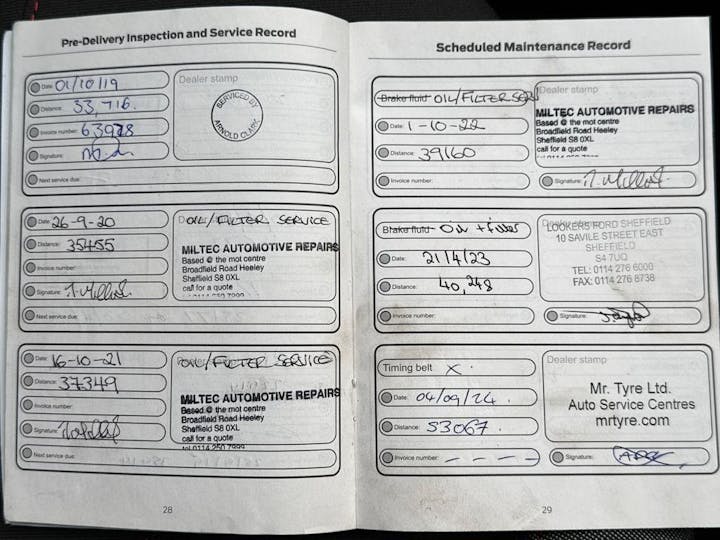 Pre-Delivery Inspection and Service Record
Date: 01/10/19
Distance: 33,716.
Invoice number: 63978
Signature:
Next service due:
Dealer stamp
SERVICED BY
ARNOLD CLARK
Date: 26-9-20
Distance: 35455
Invoice number:
Signature: T. Millard
Next service due:
OIL/FILTER SERVICE
MILTEC AUTOMOTIVE REPAIRS
Based @ the mot centre
Broadfield Road Heeley
Sheffield S8 0XL
call for a quote
Date: 16-10-21
Distance: 37349
Invoice number:
Signature:
Next service due:
OIL/FILTER SERVICE
MILTEC AUTOMOTIVE REPAIRS
Based @ the mot centre
Broadfield Road Heeley
Sheffield S8 0XL
call for a quote
28
Scheduled Maintenance Record
Brake fluid OIL/FILTER SERV
Date: 1-10-22
Distance: 39160
Invoice number:
Dealer stamp
MILTEC AUTOMOTIVE REPAIRS
Based @ the mot centre
Broadfield Road Heeley
Sheffield S8 0XL
call for a quote
Signature:
Brake fluid Oil + filter
Date: 21/4/23
Distance: 40,248
Invoice number:
LOOKERS FORD SHEFFIELD
10 SAVILE STREET EAST
SHEFFIELD
S4 7UQ
TEL: 0114 276 6000
FAX: 0114 276 8738
Signature:
Timing belt X
Date: 04/09/24.
Distance: 53067.
Invoice number: - - - -
Dealer stamp
Mr. Tyre Ltd.
Auto Service Centres
mrtyre.com
Signature:
29